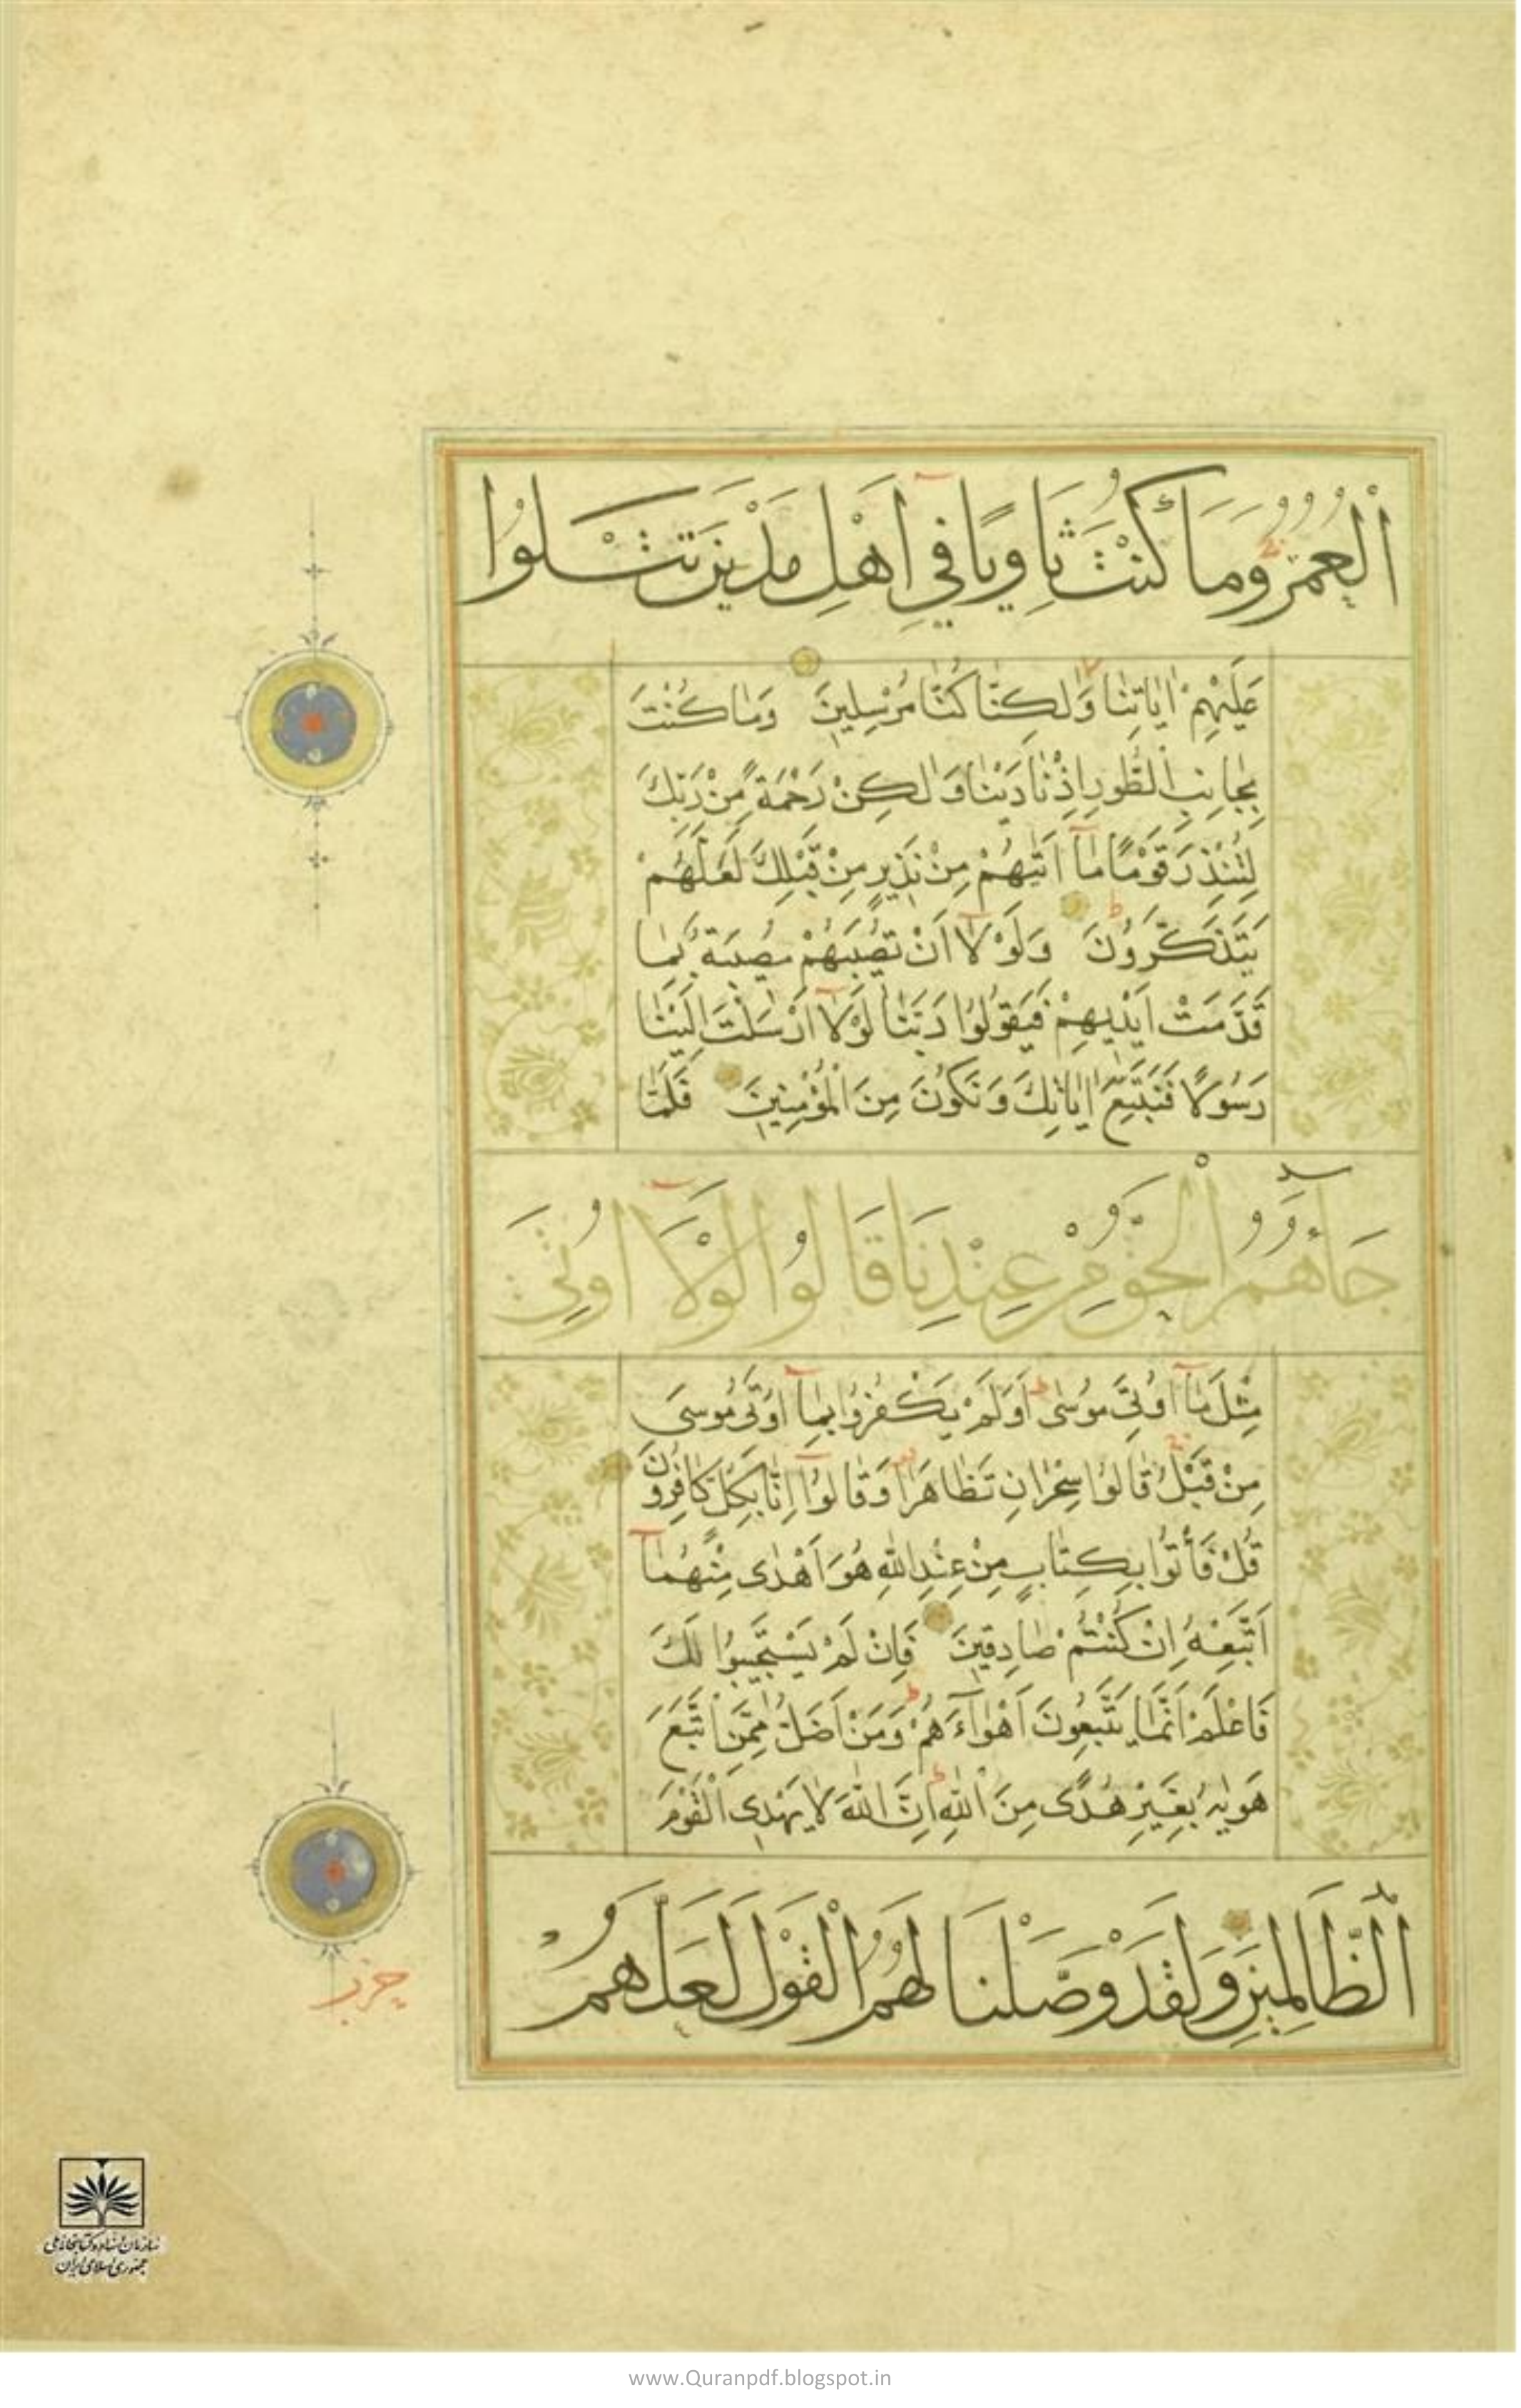 اَلْعُمُرُ وَمَا كُنْتَ ثَاوِيًا فِي اَهْلِ مَدْيَنَ تَتْلُوا
عَلَيْهِمْ اٰيَاتِنَا وَلٰكِنَّا كُنَّا مُرْسِلِينَ وَمَا كُنْتَ
بِجَانِبِ الطُّورِ اِذْ نَادَيْنَا وَلٰكِنْ رَحْمَةً مِنْ رَبِّكَ
لِتُنْذِرَ قَوْمًا مَا اَتٰيهُمْ مِنْ نَذِيرٍ مِنْ قَبْلِكَ لَعَلَّهُمْ
يَتَذَكَّرُونَ وَلَوْلَا اَنْ تُصِيبَهُمْ مُصِيبَةٌ بِمَا
قَدَّمَتْ اَيْدِيهِمْ فَيَقُولُوا رَبَّنَا لَوْلَا اَرْسَلْتَ اِلَيْنَا
رَسُولًا فَنَتَّبِعَ اٰيَاتِكَ وَنَكُونَ مِنَ الْمُؤْمِنِينَ فَلَمَّا
جَاءَهُمُ الْحَقُّ مِنْ عِنْدِنَا قَالُوا لَوْلَا اُوتِيَ
مِثْلَ مَا اُوتِيَ مُوسٰى اَوَلَمْ يَكْفُرُوا بِمَا اُوتِيَ مُوسٰى
مِنْ قَبْلُ قَالُوا سِحْرَانِ تَظَاهَرَا وَقَالُوا اِنَّا بِكُلٍّ كَافِرُونَ
قُلْ فَأْتُوا بِكِتَابٍ مِنْ عِنْدِ اللّٰهِ هُوَ اَهْدٰى مِنْهُمَا
اَتَّبِعْهُ اِنْ كُنْتُمْ صَادِقِينَ فَاِنْ لَمْ يَسْتَجِيبُوا لَكَ
فَاعْلَمْ اَنَّمَا يَتَّبِعُونَ اَهْوَاءَهُمْ وَمَنْ اَضَلُّ مِمَّنِ اتَّبَعَ
هَوٰيهُ بِغَيْرِ هُدًى مِنَ اللّٰهِ اِنَّ اللّٰهَ لَا يَهْدِي الْقَوْمَ
اَلظَّالِمِينَ وَلَقَدْ وَصَّلْنَا لَهُمُ الْقَوْلَ لَعَلَّهُمْ
حزب
سازمان اسناد و کتابخانه ملی
جمهوری اسلامی ایران
www.Quranpdf.blogspot.in